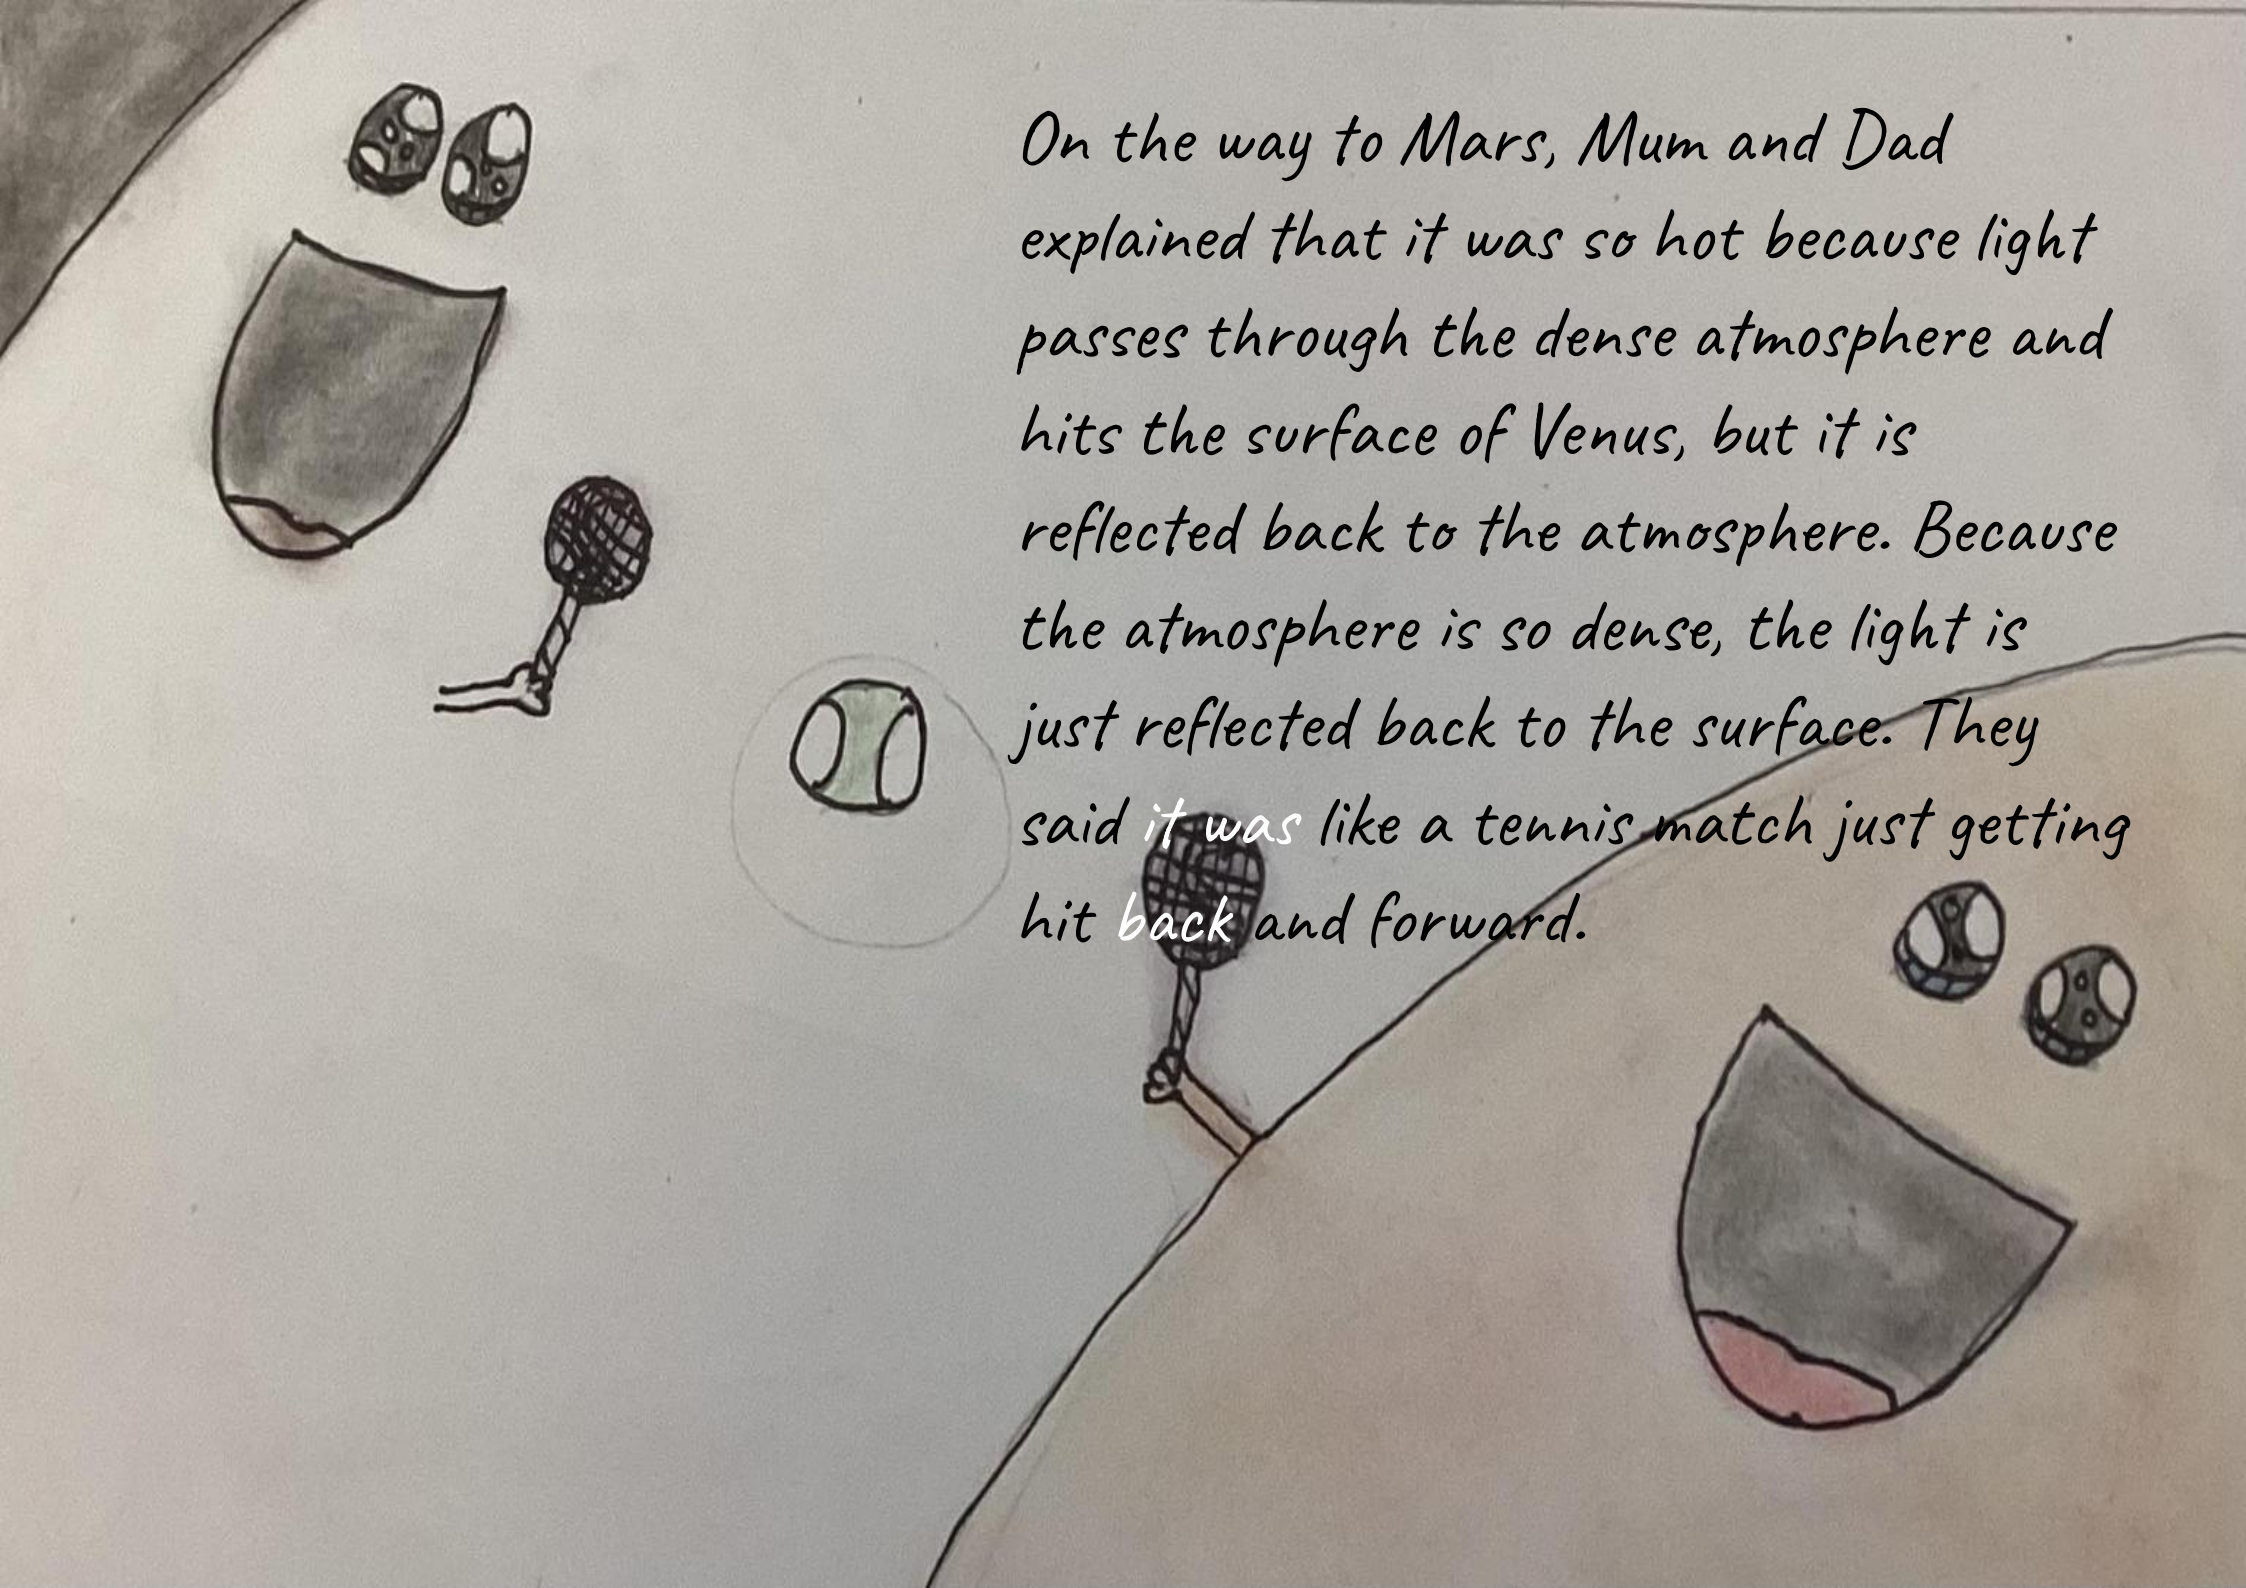 On the way to Mars, Mum and Dad
explained that it was so hot because light
passes through the dense atmosphere and
hits the surface of Venus, but it is
reflected back to the atmosphere. Because
the atmosphere is so dense, the light is
just reflected back to the surface. They
said it was like a tennis match just getting
hit back and forward.